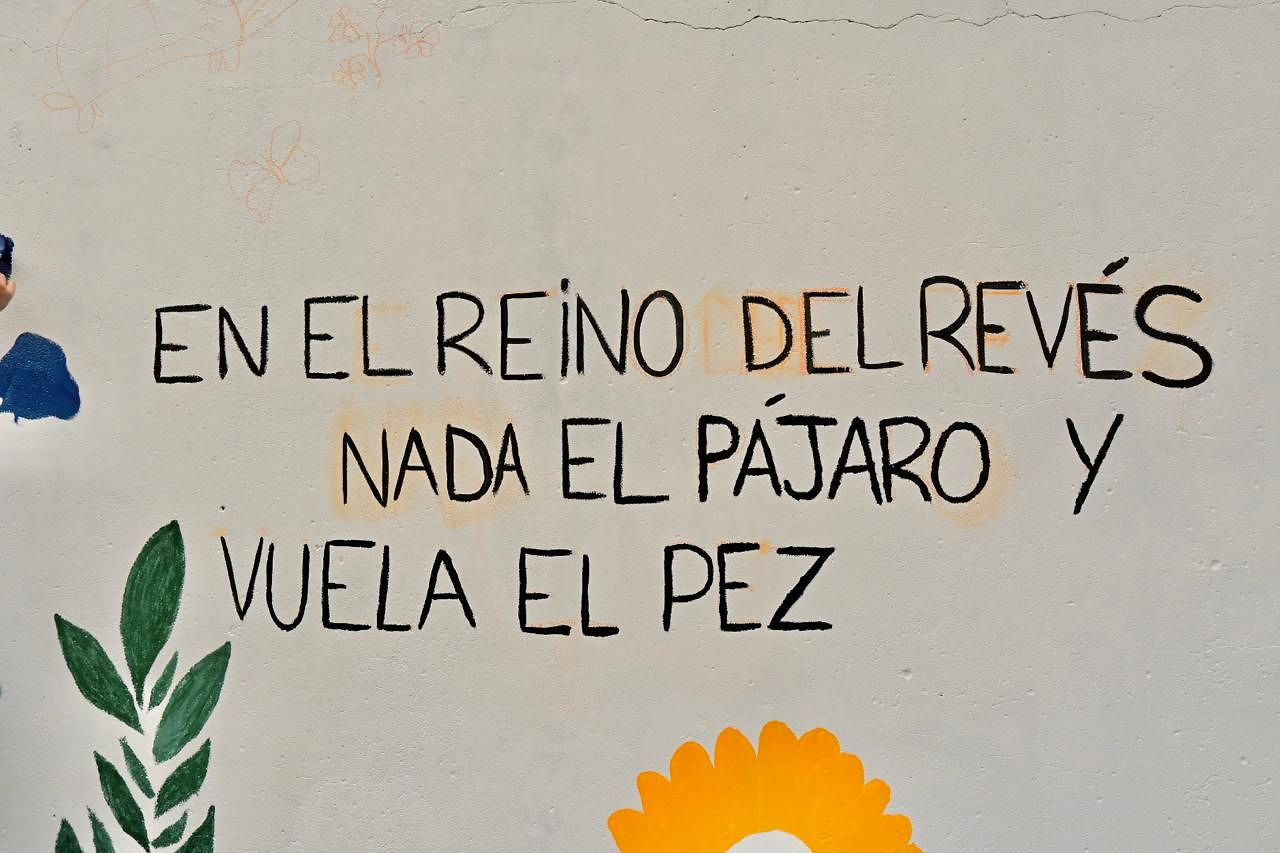 EN EL REiNO DEL REVÉS
NADA EL PÁJARO Y
VUELA EL PEZ